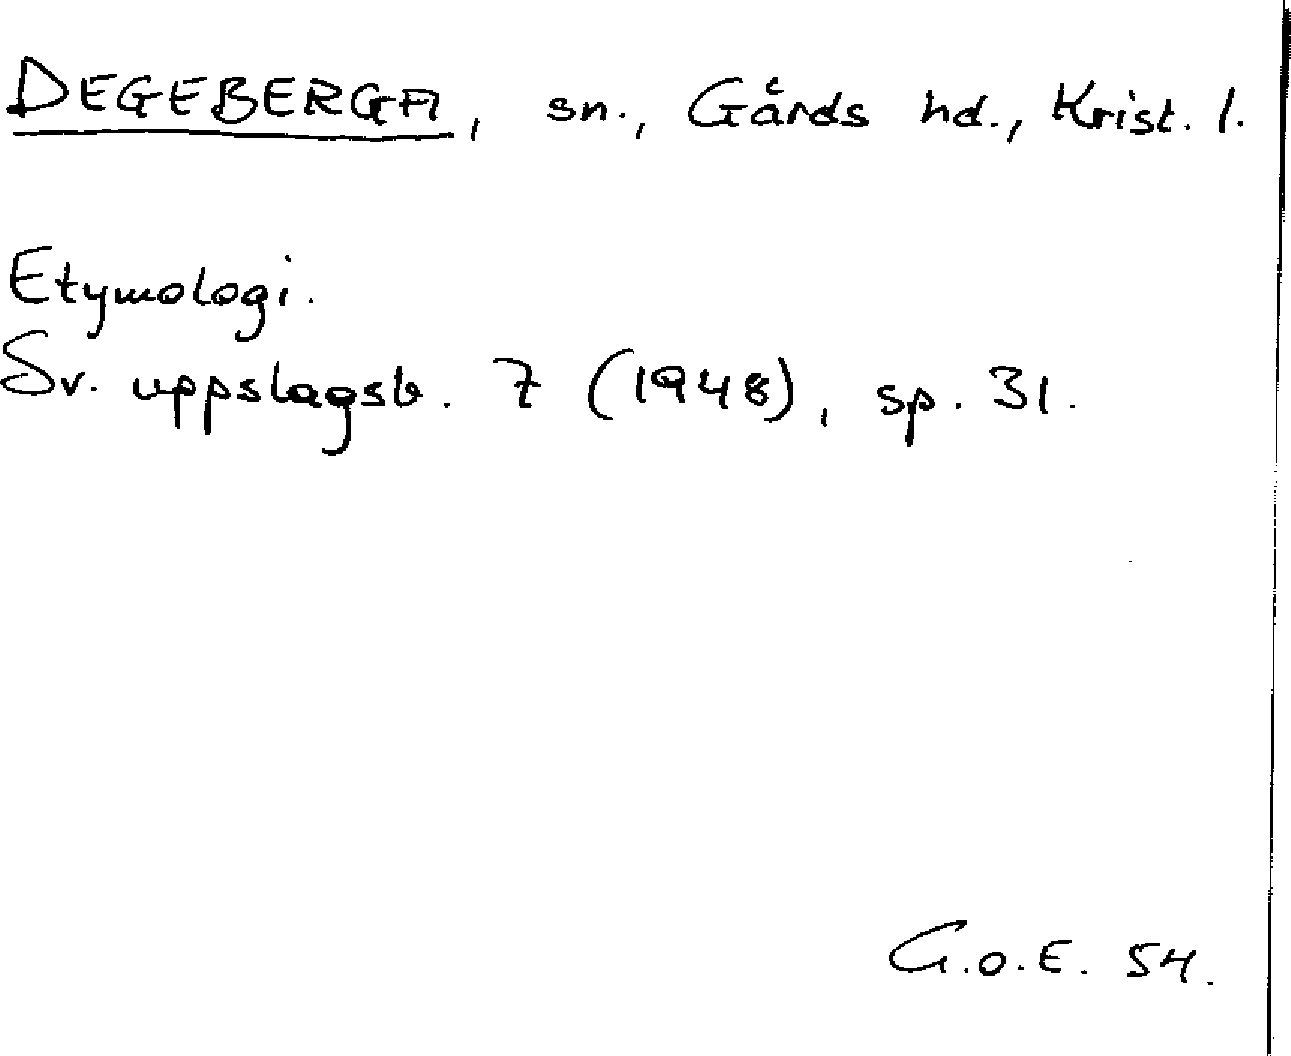 DEGEBERGA, sn., Gärds hd., Krist. l.
Etymologi.
Sv. uppslagsb. 7 (1948), sp. 31.
G.O.E. 54.